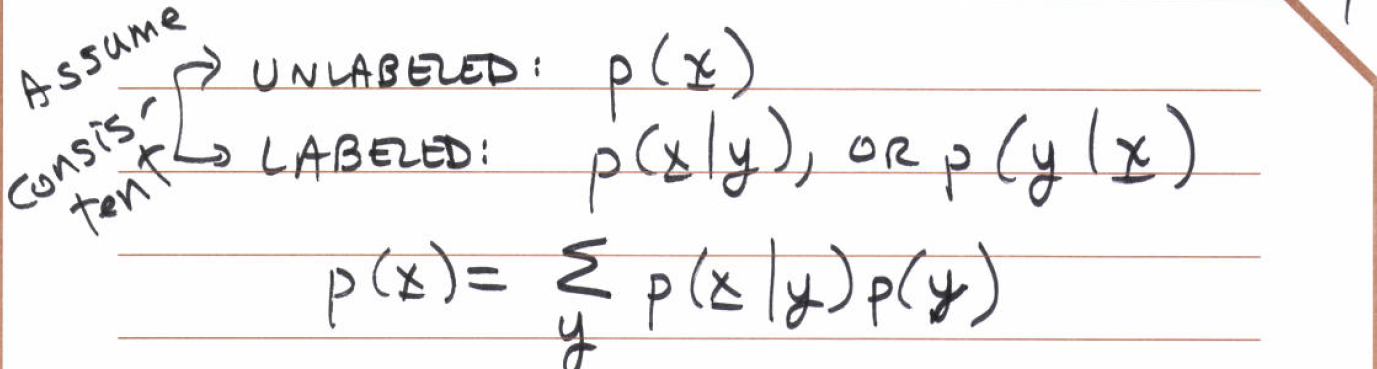 Assume
consis-
tent
UNLABELED: p(x)
LABELED: p(x|y), OR p(y|x)
p(x) = Σ p(x|y)p(y)
y